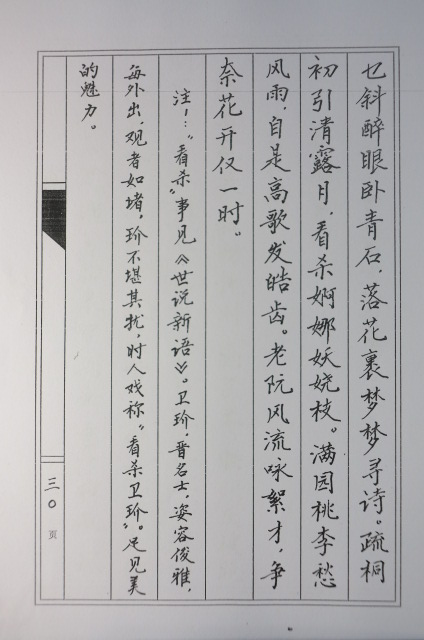 乜斜醉眼卧青石，落花裹梦梦寻诗。疏桐
初引清露月，看杀婀娜妖娆枝。满园桃李愁
风雨，自是高歌发皓齿。老阮风流咏絮才，争
奈花开仅一时。
注：“看杀”事见《世说新语》。卫玠，晋名士，姿容俊雅，
每外出，观者如堵，玠不堪其扰，时人戏称“看杀卫玠”。足见美
的魅力。
三〇页